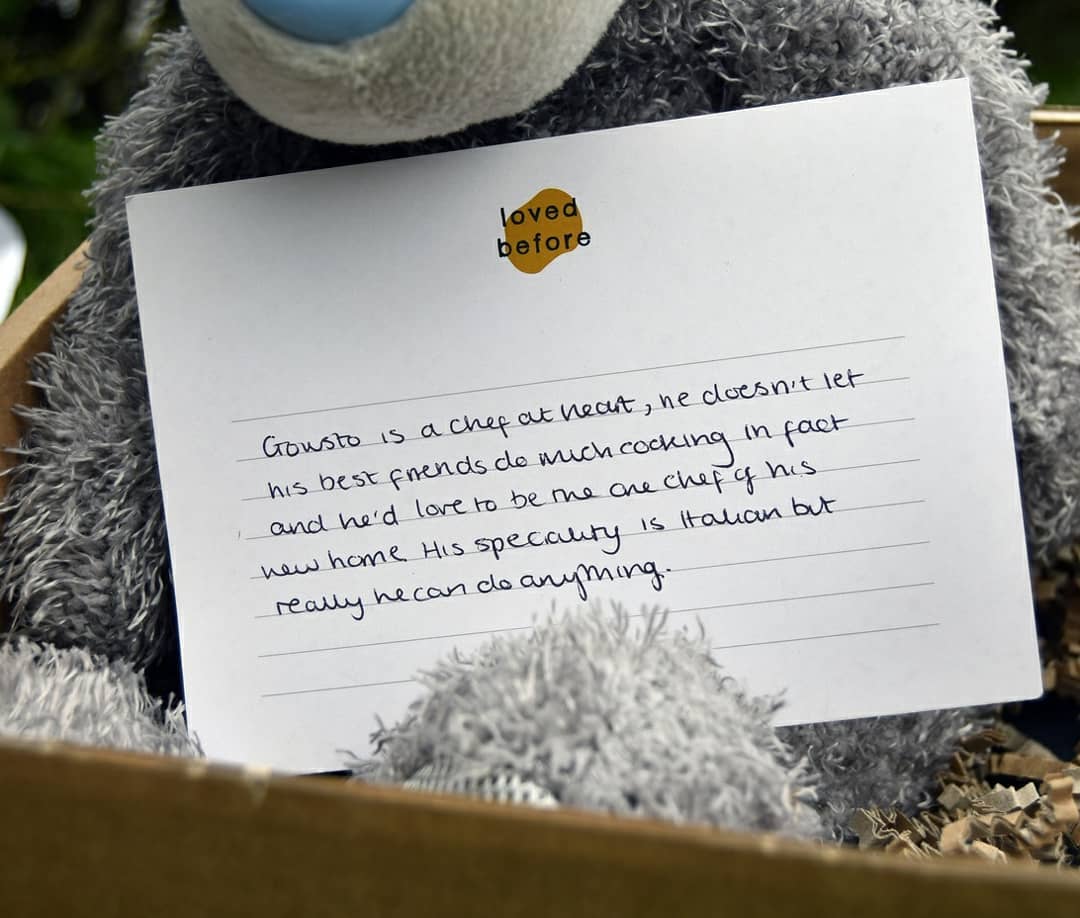 loved
before
Gousto is a chef at heart, he doesn't let
his best friends do much cooking in fact
and he'd love to be the one chef of his
new home His speciality is Italian but
really he can do anything.